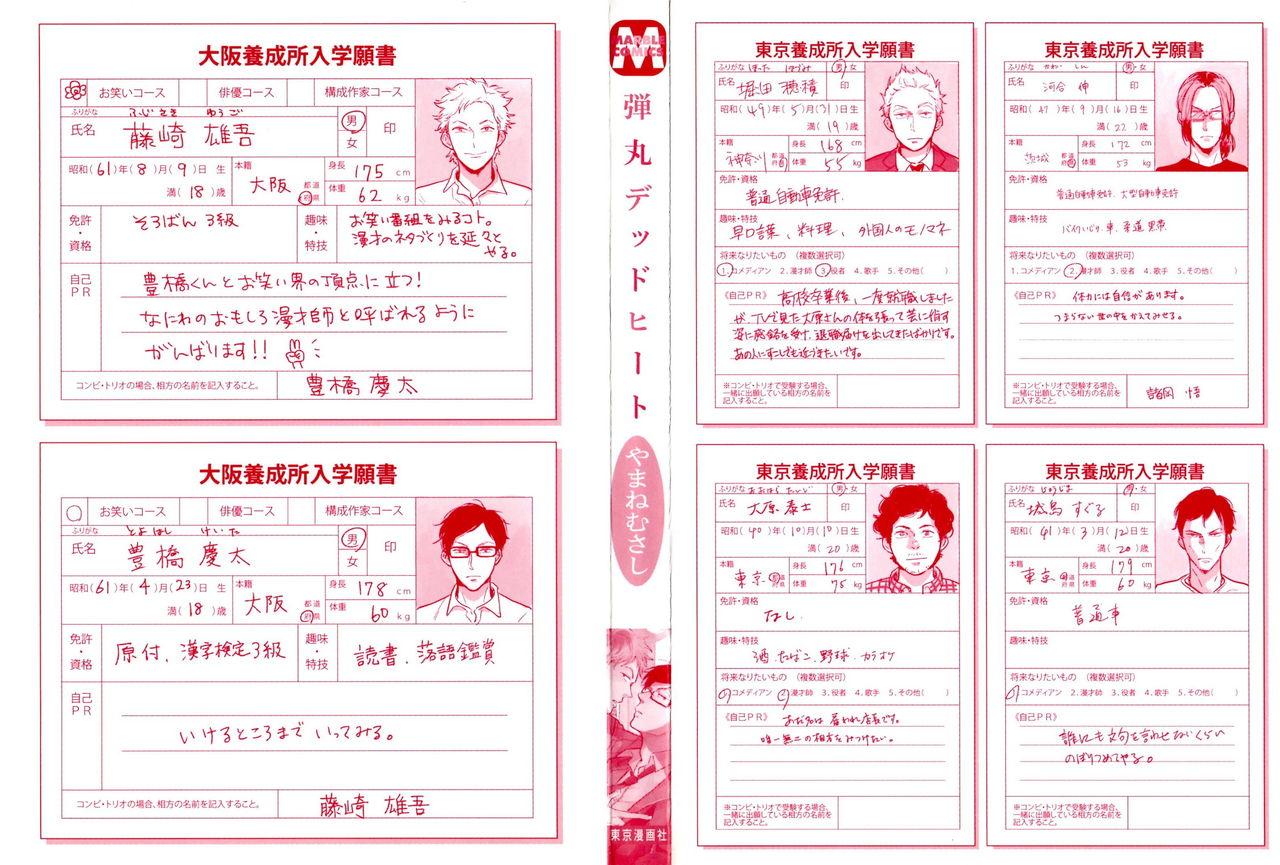 大阪養成所入学願書
お笑いコース
俳優コース
構成作家コース
ふりがな ふじさき ゆうご
氏名 藤崎 雄吾
男
女
印
昭和(61)年(8)月(9)日 生
満(18)歳
本籍
大阪 都道府県
身長 175 cm
体重 62 kg
免許・資格
そろばん 3級
趣味・特技
お笑い番組をみるコト。
漫才のネタづくりを延々と
やる。
自己PR
豊橋くんとお笑い界の頂点に立つ!
なにわのおもしろ漫才師と呼ばれるように
がんばります!!
コンビ・トリオの場合、相方の名前を記入すること。
豊橋 慶太
大阪養成所入学願書
お笑いコース
俳優コース
構成作家コース
ふりがな とよはし けいた
氏名 豊橋 慶太
男
女
印
昭和(61)年(4)月(23)日 生
満(18)歳
本籍
大阪 都道府県
身長 178 cm
体重 60 kg
免許・資格
原付、漢字検定3級
趣味・特技
読書、落語鑑賞
自己PR
いけるところまで いってみる。
コンビ・トリオの場合、相方の名前を記入すること。
藤崎 雄吾
MARBLE
COMICS
M
弾丸デッドヒート
やまねむさし
東京漫画社
東京養成所入学願書
ふりがな ほった ほづみ
男・女
氏名 堀田 穂積
印
昭和(49)年(5)月(31)日生
満(19)歳
本籍
神奈川 都道府県
身長 168 cm
体重 55 kg
免許・資格
普通自動車免許.
趣味・特技
早口言葉、料理、外国人のモノマネ
将来なりたいもの (複数選択可)
1.コメディアン 2.漫才師 3.役者 4.歌手 5.その他( )
《自己PR》 高校卒業後、一度就職しました
が、TVで見た大原さんの体を張って芸に徹す
姿に感銘を受け、退職届けを出してきたばかりです。
あの人にすこしでも近づきたいです。
※コンビ・トリオで受験する場合、
一緒に出願している相方の名前を
記入すること。
東京養成所入学願書
ふりがな かわい しん
男・女
氏名 河合 伸
印
昭和(47)年(9)月(16)日生
満(22)歳
本籍
茨城 都道府県
身長 172 cm
体重 53 kg
免許・資格
普通自動車免許、大型自動車免許
趣味・特技
バイクいじり、車、柔道 黒帯
将来なりたいもの (複数選択可)
1.コメディアン 2.漫才師 3.役者 4.歌手 5.その他( )
《自己PR》 体力には自信があります。
つまらない世の中をかえてみせる。
※コンビ・トリオで受験する場合、
一緒に出願している相方の名前を
記入すること。
諸岡 悟
東京養成所入学願書
ふりがな おおはら たいじ
男・女
氏名 大原 泰士
印
昭和(40)年(10)月(10)日生
満(20)歳
本籍
東京 都道府県
身長 176 cm
体重 75 kg
免許・資格
なし.
趣味・特技
酒、たばこ、野球、カラオケ
将来なりたいもの (複数選択可)
1.コメディアン 2.漫才師 3.役者 4.歌手 5.その他( )
《自己PR》 あだ名は 雇われ店長です。
唯一無二の相方をみつけたい。
※コンビ・トリオで受験する場合、
一緒に出願している相方の名前を
記入すること。
東京養成所入学願書
ふりがな じょうじま
男・女
氏名 城島 すぐる
印
昭和(41)年(3)月(12)日生
満(20)歳
本籍
東京 都道府県
身長 179 cm
体重 60 kg
免許・資格
普通車
趣味・特技
将来なりたいもの (複数選択可)
1.コメディアン 2.漫才師 3.役者 4.歌手 5.その他( )
《自己PR》
誰にも文句を言わせないくらい
のぼりつめてやる。
※コンビ・トリオで受験する場合、
一緒に出願している相方の名前を
記入すること。